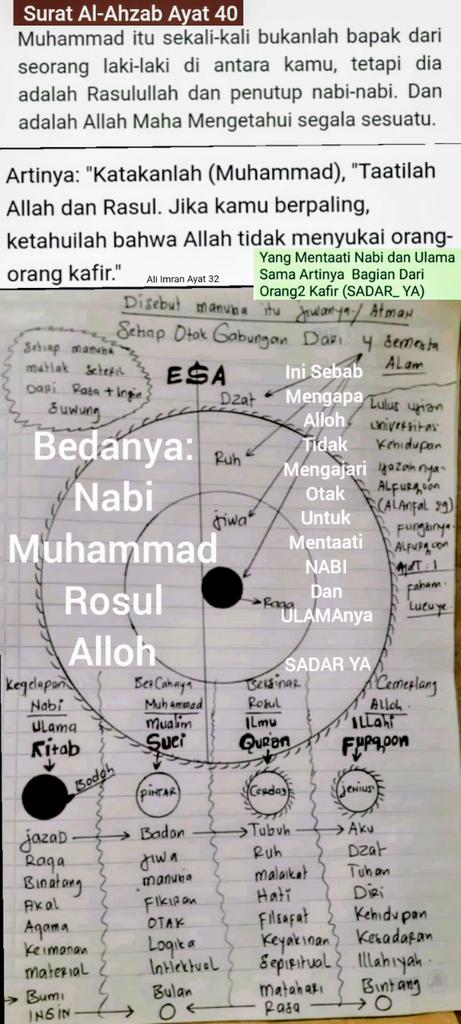 Surat Al-Ahzab Ayat 40
Muhammad itu sekali-kali bukanlah bapak dari
seorang laki-laki di antara kamu, tetapi dia
adalah Rasulullah dan penutup nabi-nabi. Dan
adalah Allah Maha Mengetahui segala sesuatu.
Artinya: "Katakanlah (Muhammad), "Taatilah
Allah dan Rasul. Jika kamu berpaling,
ketahuilah bahwa Allah tidak menyukai orang-
orang kafir."
Ali Imran Ayat 32
Yang Mentaati Nabi dan Ulama
Sama Artinya Bagian Dari
Orang2 Kafir (SADAR_ YA)
Disebut manusia itu jiwanya / Atman
Setiap Otak Gabungan Dari 4 Semesta
ALam
Setiap manusia
mutlak
Dari Rasa + Ingin
Suwung
ESA
Dzat
Ruh
jiwa
Raga
Ini Sebab
Mengapa
Alloh
Tidak
Mengajari
Otak
Untuk
Mentaati
NABI
Dan
ULAMAnya
SADAR YA
Lulus ujian
universitas
Kehidupan
ijazahnya
ALFURQOON
(ALAnfal 29)
Fungsinya
ALFURQOON
AyaT : 1
Faham
Lucu ye
Bedanya:
Nabi
Muhammad
Rosul
Alloh
Kegelapan BerCahaya Bersinar Cemerlang
Nabi Muhammad Rosul Alloh
ULama Mualim ILmu ILLahi
Kitab Suci Quran Furqoon
Bodoh PINTAR Cerdas jenius
jazaD Badan Tubuh Aku
Raga jiwa Ruh Dzat
Binatang manusia malaikat Tuhan
Akal FIKIRan Hati Diri
Agama OTAK Filsafat Kehidupan
Keimanan Logika Keyakinan Kesadaran
material Intlektual Sepiritual Illahiyah
Bumi Bulan matahari Bintang
INGIN Rasa